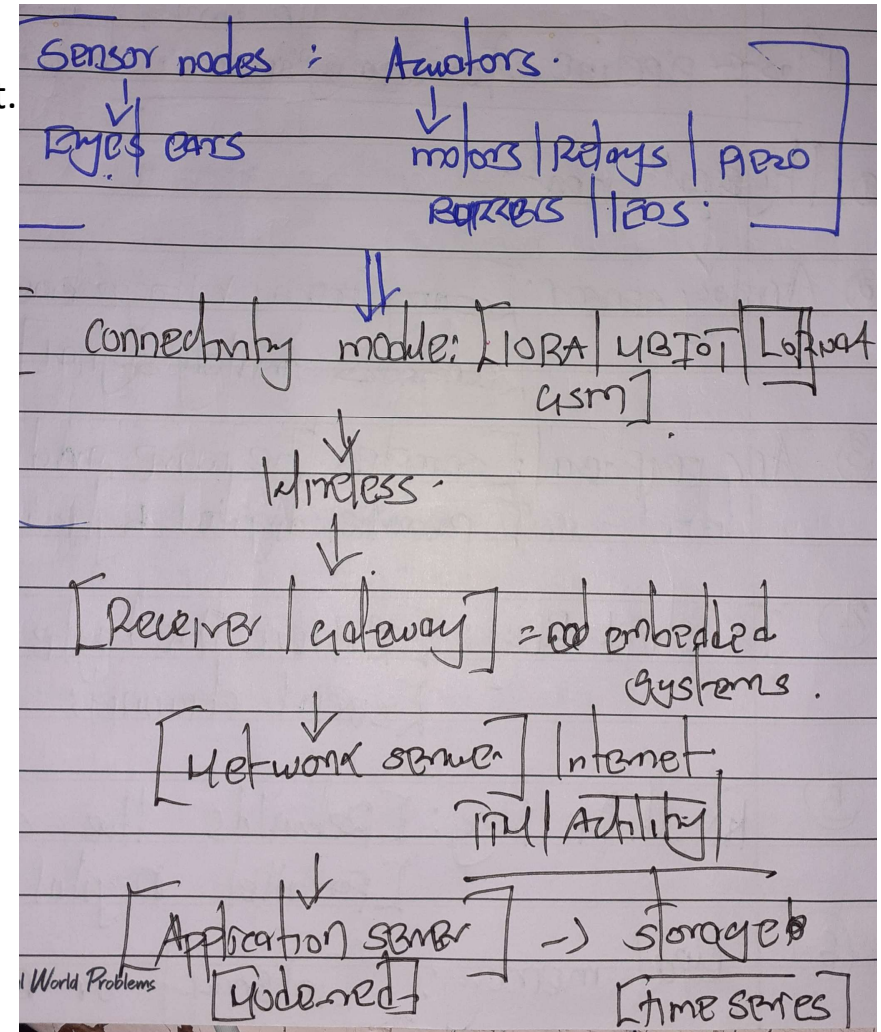 t.
Sensor nodes : Actuators.
↓ ↓
Eyes| ears motors | Relays | PIEZO
BUZZERS | LEDS.
⇓
Connectivity module: [LORA | NBIOT |
GSM]
↓
Wireless.
↓
[Receiver | gateway] = embedded
systems.
↓
[Network server] Internet
TTN | Actility
↓
[Application server] -> storage
[Nodered] [time series]
l World Problems